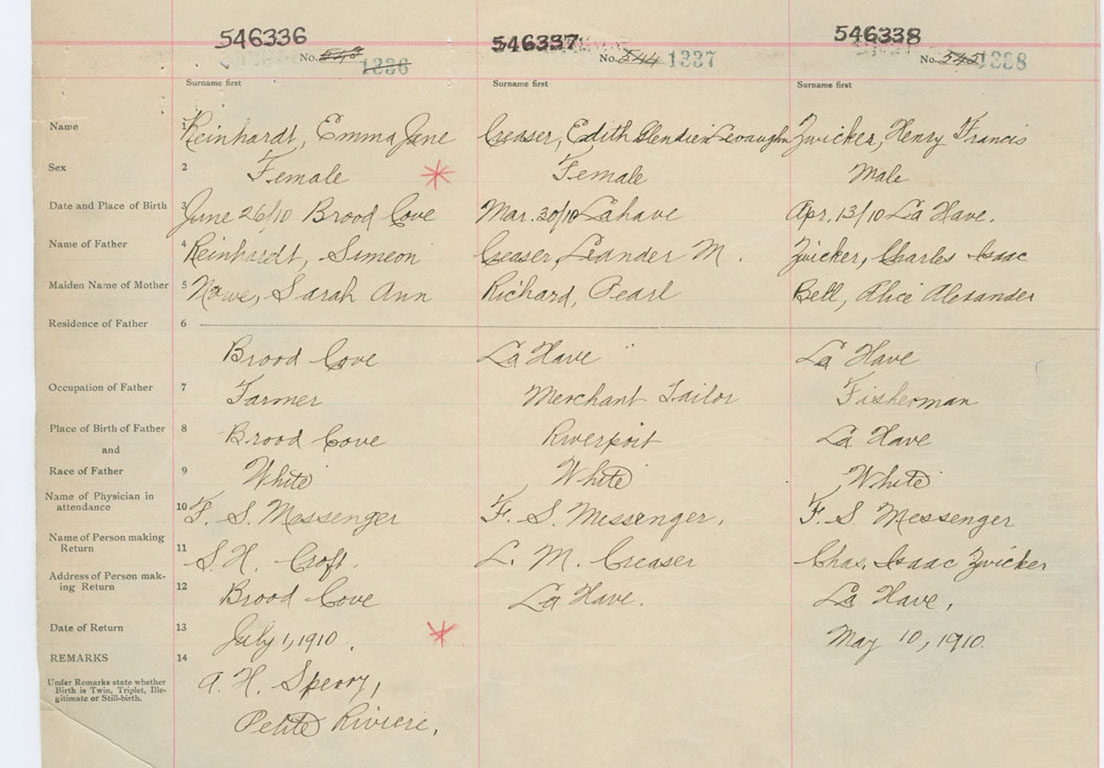 546336 546337 546338
No. 543 1336 No. 544 1337 No. 545 1338
Surname first Surname first Surname first
Name 1 Reinhardt, Emma Jane Creaser, Edith Zwicker, Henry Francis
Sex 2 Female Female Male
Date and Place of Birth 3 June 26/10 Brood Cove Mar. 30/10 Lahave Apr. 13/10 La Have.
Name of Father 4 Reinhardt, Simeon Creaser, Leander M. Zwicker, Charles Isaac
Maiden Name of Mother 5 Nowe, Sarah Ann Richard, Pearl Bell, Alice Alexander
Residence of Father 6
Brood Cove La Have La Have
Occupation of Father 7 Farmer Merchant Tailor Fisherman
Place of Birth of Father 8 Brood Cove Riverport La Have
and
Race of Father 9 White White White
Name of Physician in
attendance 10 F. S. Messenger F. S. Messenger. F. S Messenger
Name of Person making
Return 11 S. H. Croft. L. M. Creaser Chas. Isaac Zwicker
Address of Person mak-
ing Return 12 Brood Cove La Have. La Have,
Date of Return 13 July 1, 1910. May 10, 1910
REMARKS 14
Under Remarks state whether
Birth is Twin, Triplet, Ille-
gitimate or Still-birth.
A. H. Sperry,
Petite Riviere.